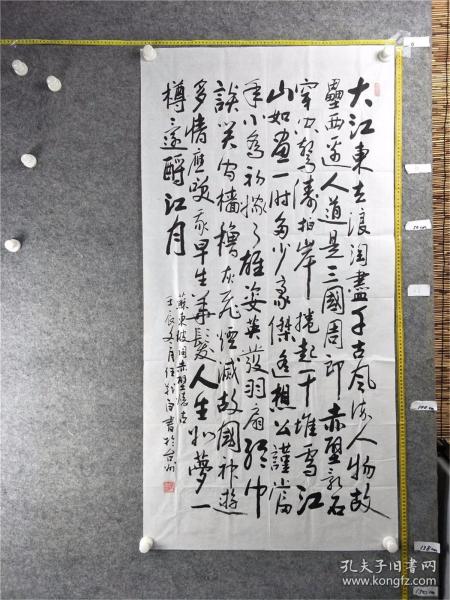 大江東去浪淘盡千古風流人物故
壘西邊人道是三國周郎赤壁亂石
穿空驚濤拍岸捲起千堆雪江
山如畫一時多少豪傑遙想公謹當
年小喬初嫁了雄姿英發羽扇綸巾
談笑間檣櫓灰飛煙滅故國神遊
多情應笑我早生華髮人生如夢一
樽還酹江月
蘇東坡詞赤壁懷古
壬辰 月任 白書於台州
100cm
138cm
孔夫子旧书网
www.kongfz.com